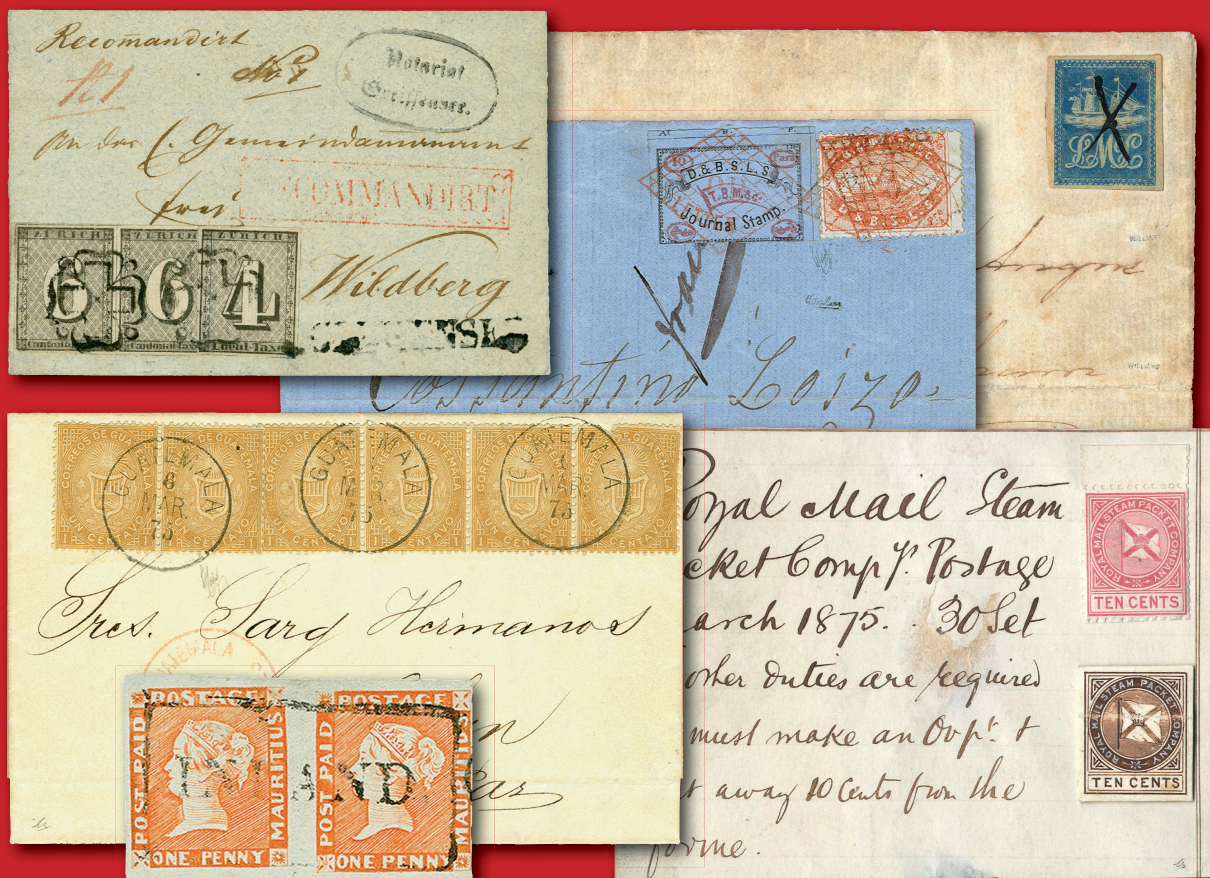 Recom̄andirt
No 1
Notariat
Greiffensee.
An das E. Gemeindammannamt
frei
RECOMMANDIRT
ZÜRICH ZÜRICH ZÜRICH
6 6 4
Cantonal Taxe Cantonal Taxe Local Taxe
Wildberg
LMC
WILLIAMS
WILLIAMS
10 Para
D. & B.S.L.S.
T.B.M. & C.
Journal Stamp.
D. & B.S.L.S.
Costantino Loizo-
CORREOS DE GUATEMALA
UN CENTAVO
GUATEMALA
6
MAR.
75
GUATEMALA
MAR.
75
GUATEMALA
MAR.
75
Sres. Sarg Hermanos
GUATEMALA
POSTAGE POSTAGE
POST PAID MAURITIUS POST PAID MAURITIUS
INLAND
ONE PENNY ONE PENNY
Royal Mail Steam
cket Compy's Postage
arch 1875. 30 Set
other duties are required
must make an Ovpt. &
t away 10 Cents from the
forme.
ROYAL MAIL STEAM PACKET COMPANY
TEN CENTS
ROYAL MAIL STEAM PACKET COMPANY
TEN CENTS